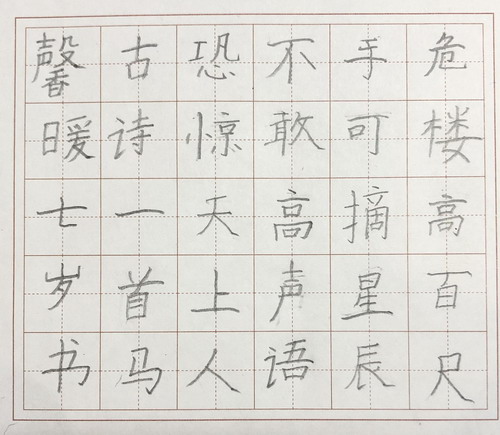 危楼高百尺
手可摘星辰
不敢高声语
恐惊天上人
古诗一首马
馨暖七岁书